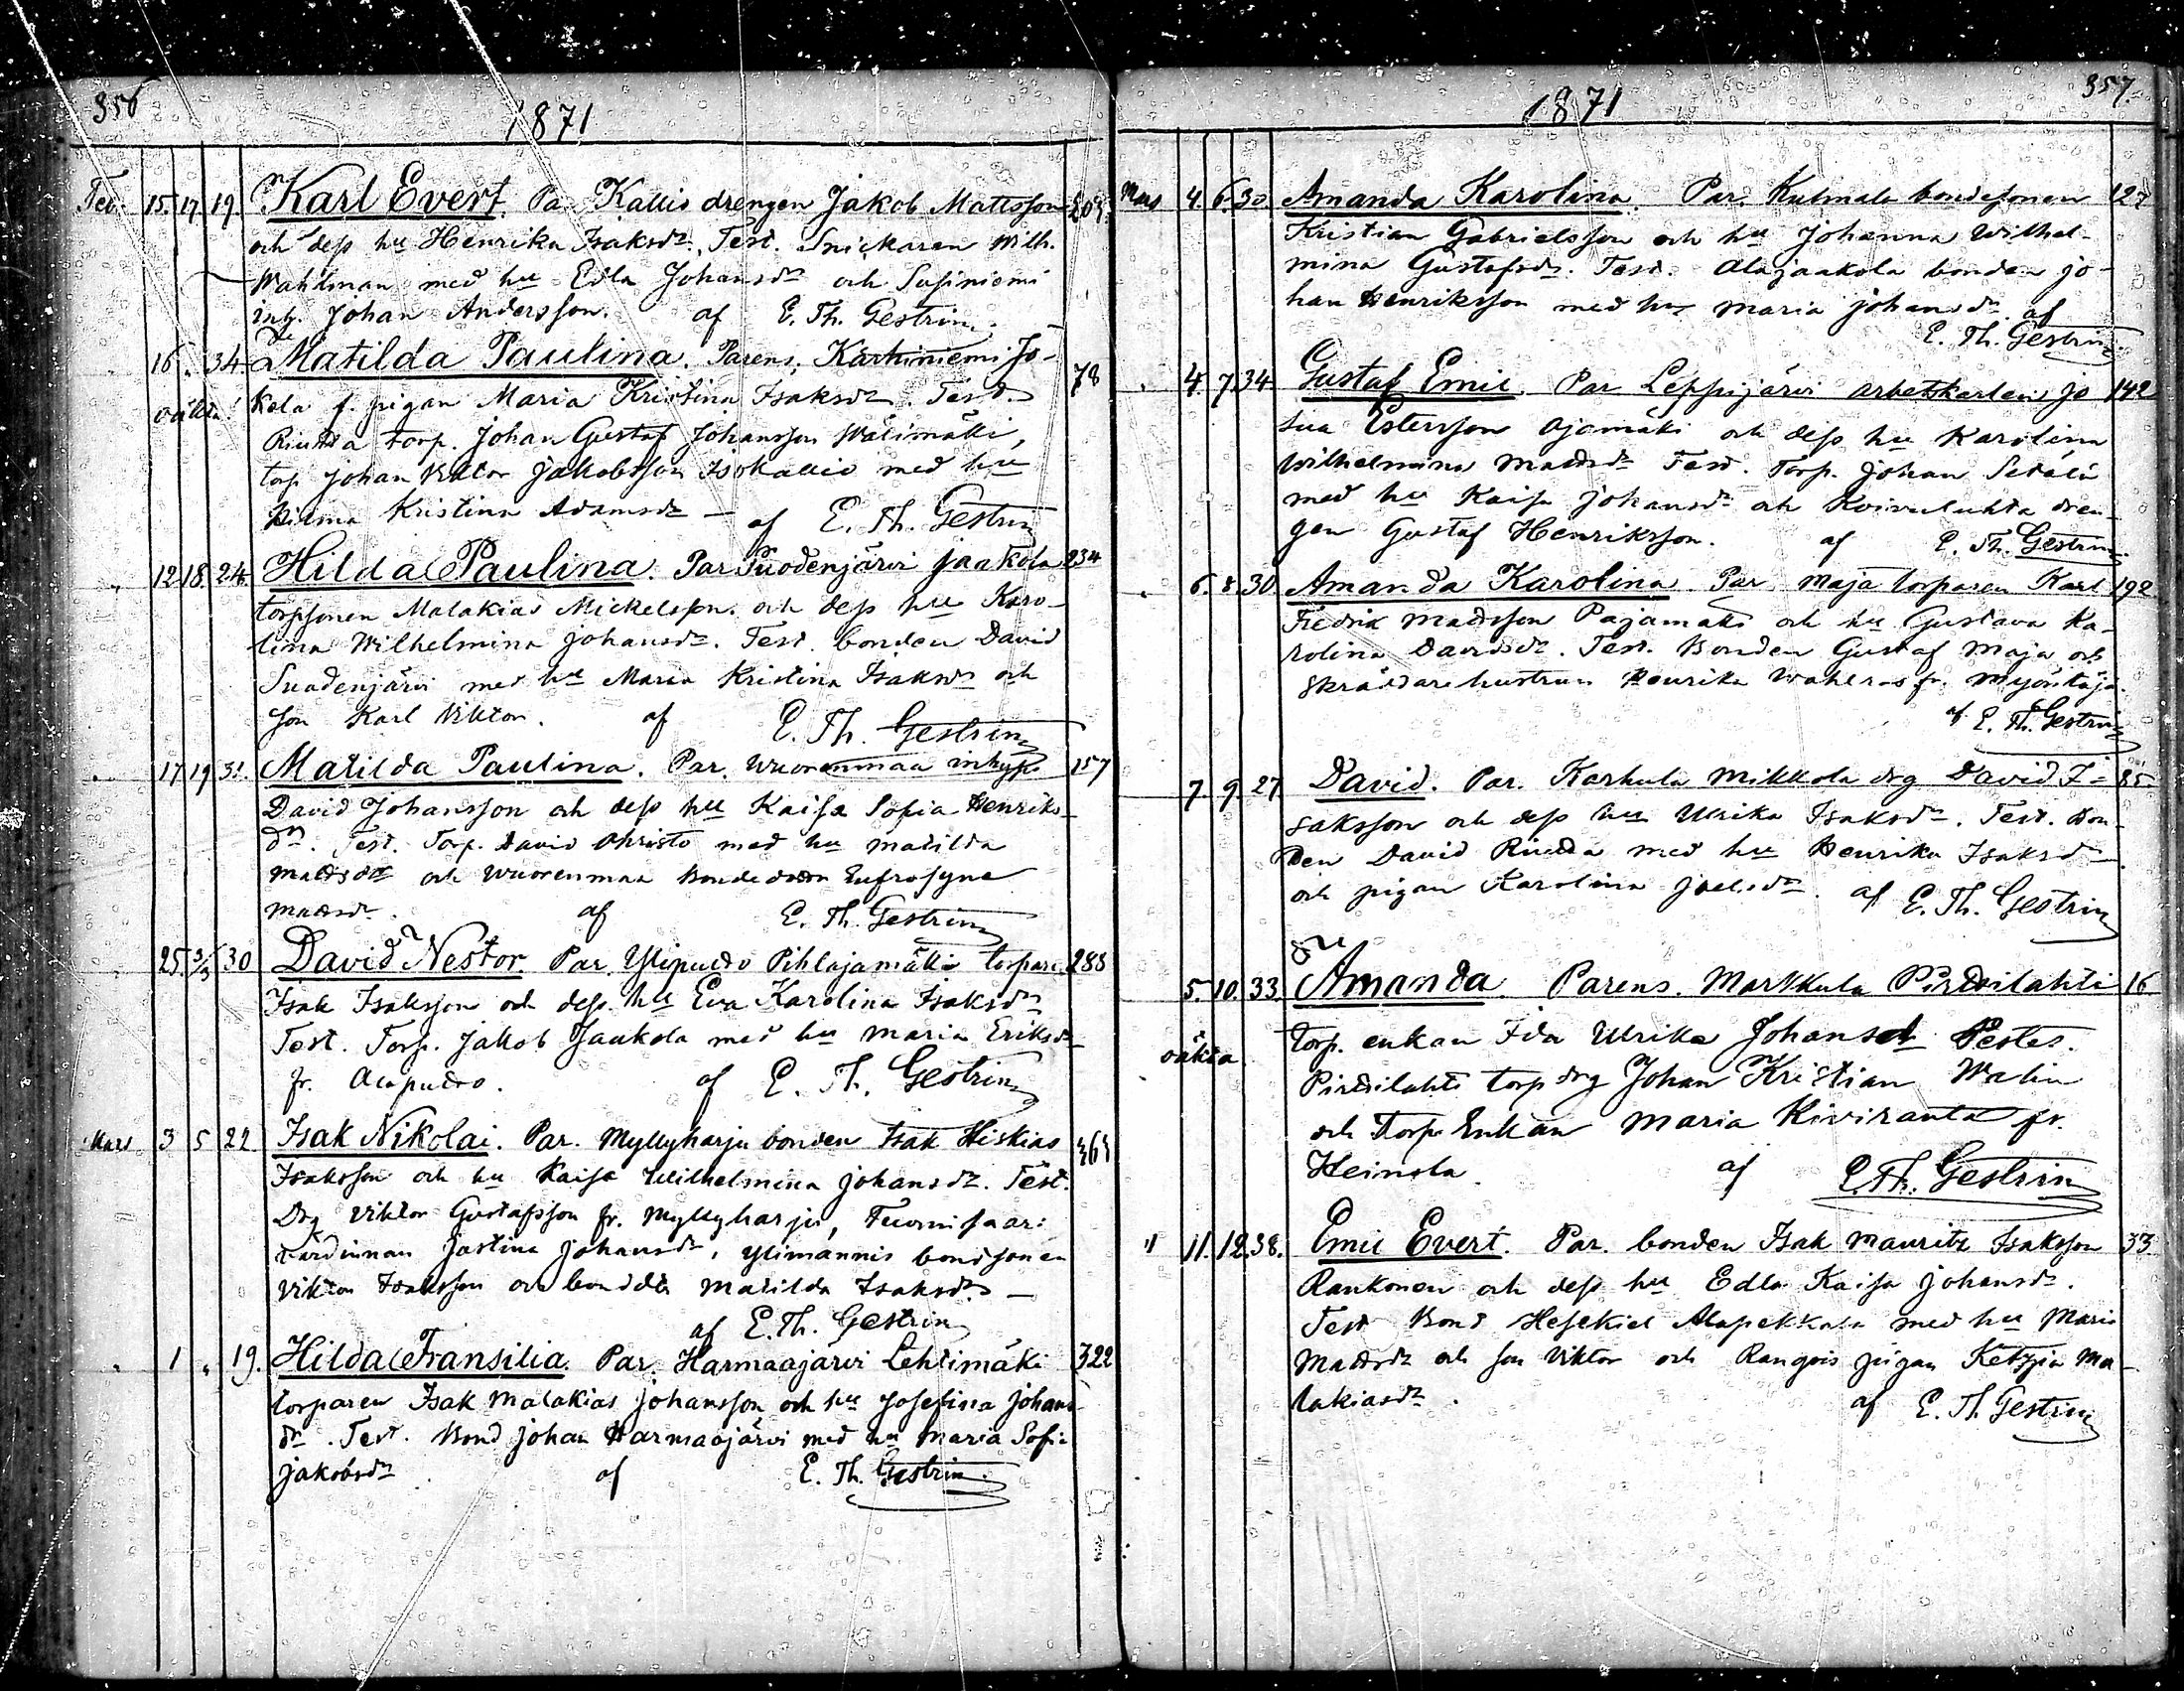 356
1871
Feb. 15. 17. 19. Karl Evert. Par Kallis drengen Jakob Mattsson 209
och dess hu Henrika Isaksdr. Test. Snickaren Wilh.
Wahlman med hu Edla Johansdr och Susiniemi
inh. Johan Andersson. af E. Th. Gestrin.
16 „ 34 Matilda Paulina. Parens, Karhiniemi Jo- 78
oäkta! kola f. pigan Maria Kristina Isaksdr. Test.
Riutta torp. Johan Gustaf Johansson Wälimäki,
torp Johan Viktor Jakobsson Isokallio med hu
Hilma Kristina Adamsdr — af E. Th. Gestrin
„ 12 18. 24. Hilda Paulina. Par Suodenjärvi Jaakola 234
torpsonen Malakias Mickelsson och dess hu Karo-
lina Wilhelmina Johansdr. Test. bonden David
Suodenjärvi med hu Maria Kristina Isaksdr och
son Karl Viktor. af E. Th. Gestrin
„ 17 19 31. Matilda Paulina. Par. Wuorenmaa inhys 157
David Johansson och dess hu Kaisa Sofia Henriks-
dr. Test. Torp. David Ahristo med hu Matilda
Mattsdr och Wuorenmaa bondedottr Eufrosyne
Mattsdr. af E. Th. Gestrin
„ 25. 3/3 30 David Nestor. Par. Ylipuotto Pihlajamäki torpare 288
Isak Isaksson och dess hu Eva Karolina Isaksdr
Test. Torp. Jakob Jaakola med hu Maria Eriksdr
fr. Alapuotto. af E. Th. Gestrin
Mars 3 5 22 Isak Nikolai. Par. Myllyharju bonden Isak Hiskias 363
Isaksson och hu Kaisa Wilhelmina Johansdr. Test.
Drg Viktor Gustafsson fr. Myllyharju, Tuomisaari
värdinnan Justina Johansdr, Ylimännis bondsonen
Viktor Isaksson och bonddtr Matilda Isaksdr. —
af E. Th. Gestrin
„ 1 „ 19. Hilda Fransilia. Par. Harmaajärvi Lehtimäki 322
torparen Isak Malakias Johansson och hu Josefina Johans-
dr. Test. Bond Johan Harmaajärvi med hu Maria Sofia
Jakobsdr. af E. Th. Gestrin.
357.
1871
Mars 4. 6. 30 Amanda Karolina. Par. Kulmala bondesonen 127
Kristian Gabrielsson och hu Johanna Wilhel-
mina Gustafsdr. Test. Alajaakola bonden Jo-
han Henriksson med hu Maria Johansdr. af
E. Th. Gestrin
„ 4. 7. 34 Gustaf Emil. Par Leppijärvi arbetskarlen Jo 142
sua Estersson Ajomäki och dess hu Karolina
Wilhelmina Mattsdr Test. Torp. Johan Setälä
med hu Kaisa Johansdr och Koivuluhta dren-
gen Gustaf Henriksson. af E. Th. Gestrin.
„ 6. 8. 30 Amanda Karolina. Par Maja torparen Karl 192
Fredrik Mattsson Pajamäki och hu Gustava Ka-
rolina Davidsdr. Test. Bonden Gustaf Maja och
Skräddare hustrun Henrika Wahlroos fr. Myöntäjä.
af E. Th. Gestrin
7. 9. 27. David. Par. Karhula Mikkola drg David I= 85.
saksson och dess hu Ulrika Isaksdr. Test. Bon-
den David Riutta med hu Henrika Isaksdr
och pigan Karolina Joelsdr. af E. Th. Gestrin
5. 10. 33. Amanda Parens. Markkula Pirttilahti 16
oäkta torp. enkan Ida Ulrika Johansdr Testes.
Pirttilahti torp drg Johan Kristian Walin
och Torp Enkan Maria Kiviranta fr.
Heinola. af E. Th. Gestrin
" 11. 12. 38. Emil Evert. Par. bonden Isak Mauritz Isaksson 33
Raukonen och dess hu Edla Kaisa Johansdr.
Test Bond Hesekiel Alapekkala med hu Maria
Mattsdr och son Viktor och Rangois pigan Ketzpia Ma-
lakiasdr. af E. Th. Gestrin